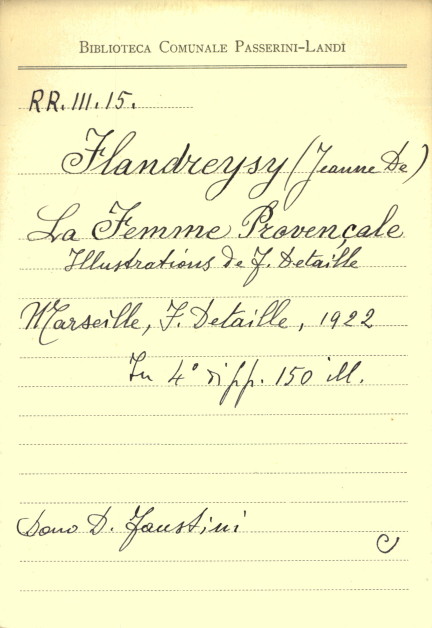 BIBLIOTECA COMUNALE PASSERINI-LANDI
RR. III. 15.
Flandreysy (Jeanne De)
La Femme Provençale
Illustrations de F. Detaille
Marseille, F. Detaille, 1922
In 4° di pp. 150 ill.
Dono D. Faustini
C